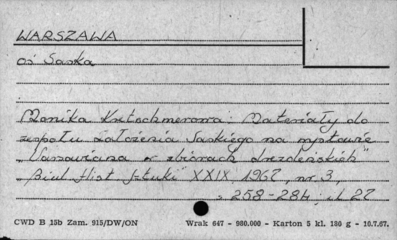 WARSZAWA
oś Saska
Monika Kretschmerowa: Materiały do
zespołu założenia Saskiego na wystawie
"Varsaviana w zbiorach drezdeńskich"
Biul. Hist. Sztuki XXIX 1967, nr 3,
s. 258-284, il. 27
CWD B 15b Zam. 915/DW/ON Wrak 647 - 980.000 - Karton 5 kl. 180 g - 10.7.67.